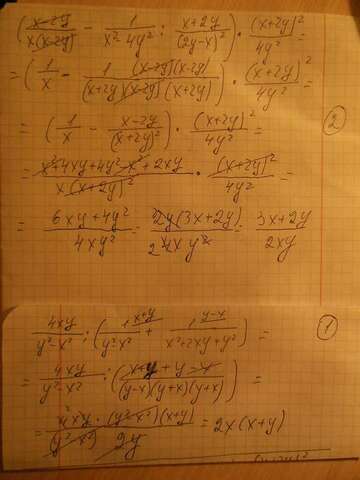 ( (x-2y)/(x(x-2y)) - 1/(x²-4y²) : (x+2y)/(2y-x)² ) · (x+2y)²/4y² =
= ( 1/x - (1 (x-2y)(x-2y))/((x+2y)(x-2y)(x+2y)) ) · (x+2y)²/4y² =
= ( 1/x - (x-2y)/(x+2y)² ) · (x+2y)²/4y² =
= (x²+4xy+4y²-x²+2xy)/(x(x+2y)²) · (x+2y)²/4y² =
= (6xy+4y²)/4xy² = 2y(3x+2y)/4xy² = (3x+2y)/2xy
2
1
4xy/(y²-x²) : ( 1/(y²-x²) + 1/(x²+2xy+y²) ) =
= 4xy/(y²-x²) : ( (x+y+y-x)/((y-x)(y+x)(y+x)) ) =
= (4xy · (y²-x²)(x+y))/((y²-x²) 2y) = 2x(x+y)